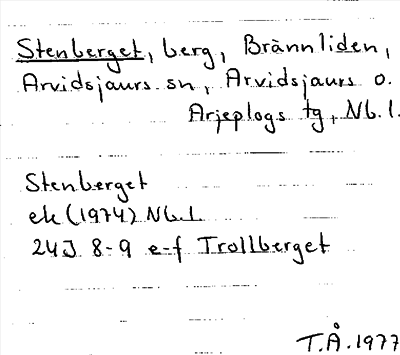 Stenberget, berg, Brännliden,
Arvidsjaurs sn, Arvidsjaurs o.
Arjeplogs tg, Nb.l.
Stenberget
ek (1974) Nb.l.
24J 8-9 e-f Trollberget
T.Å. 1977